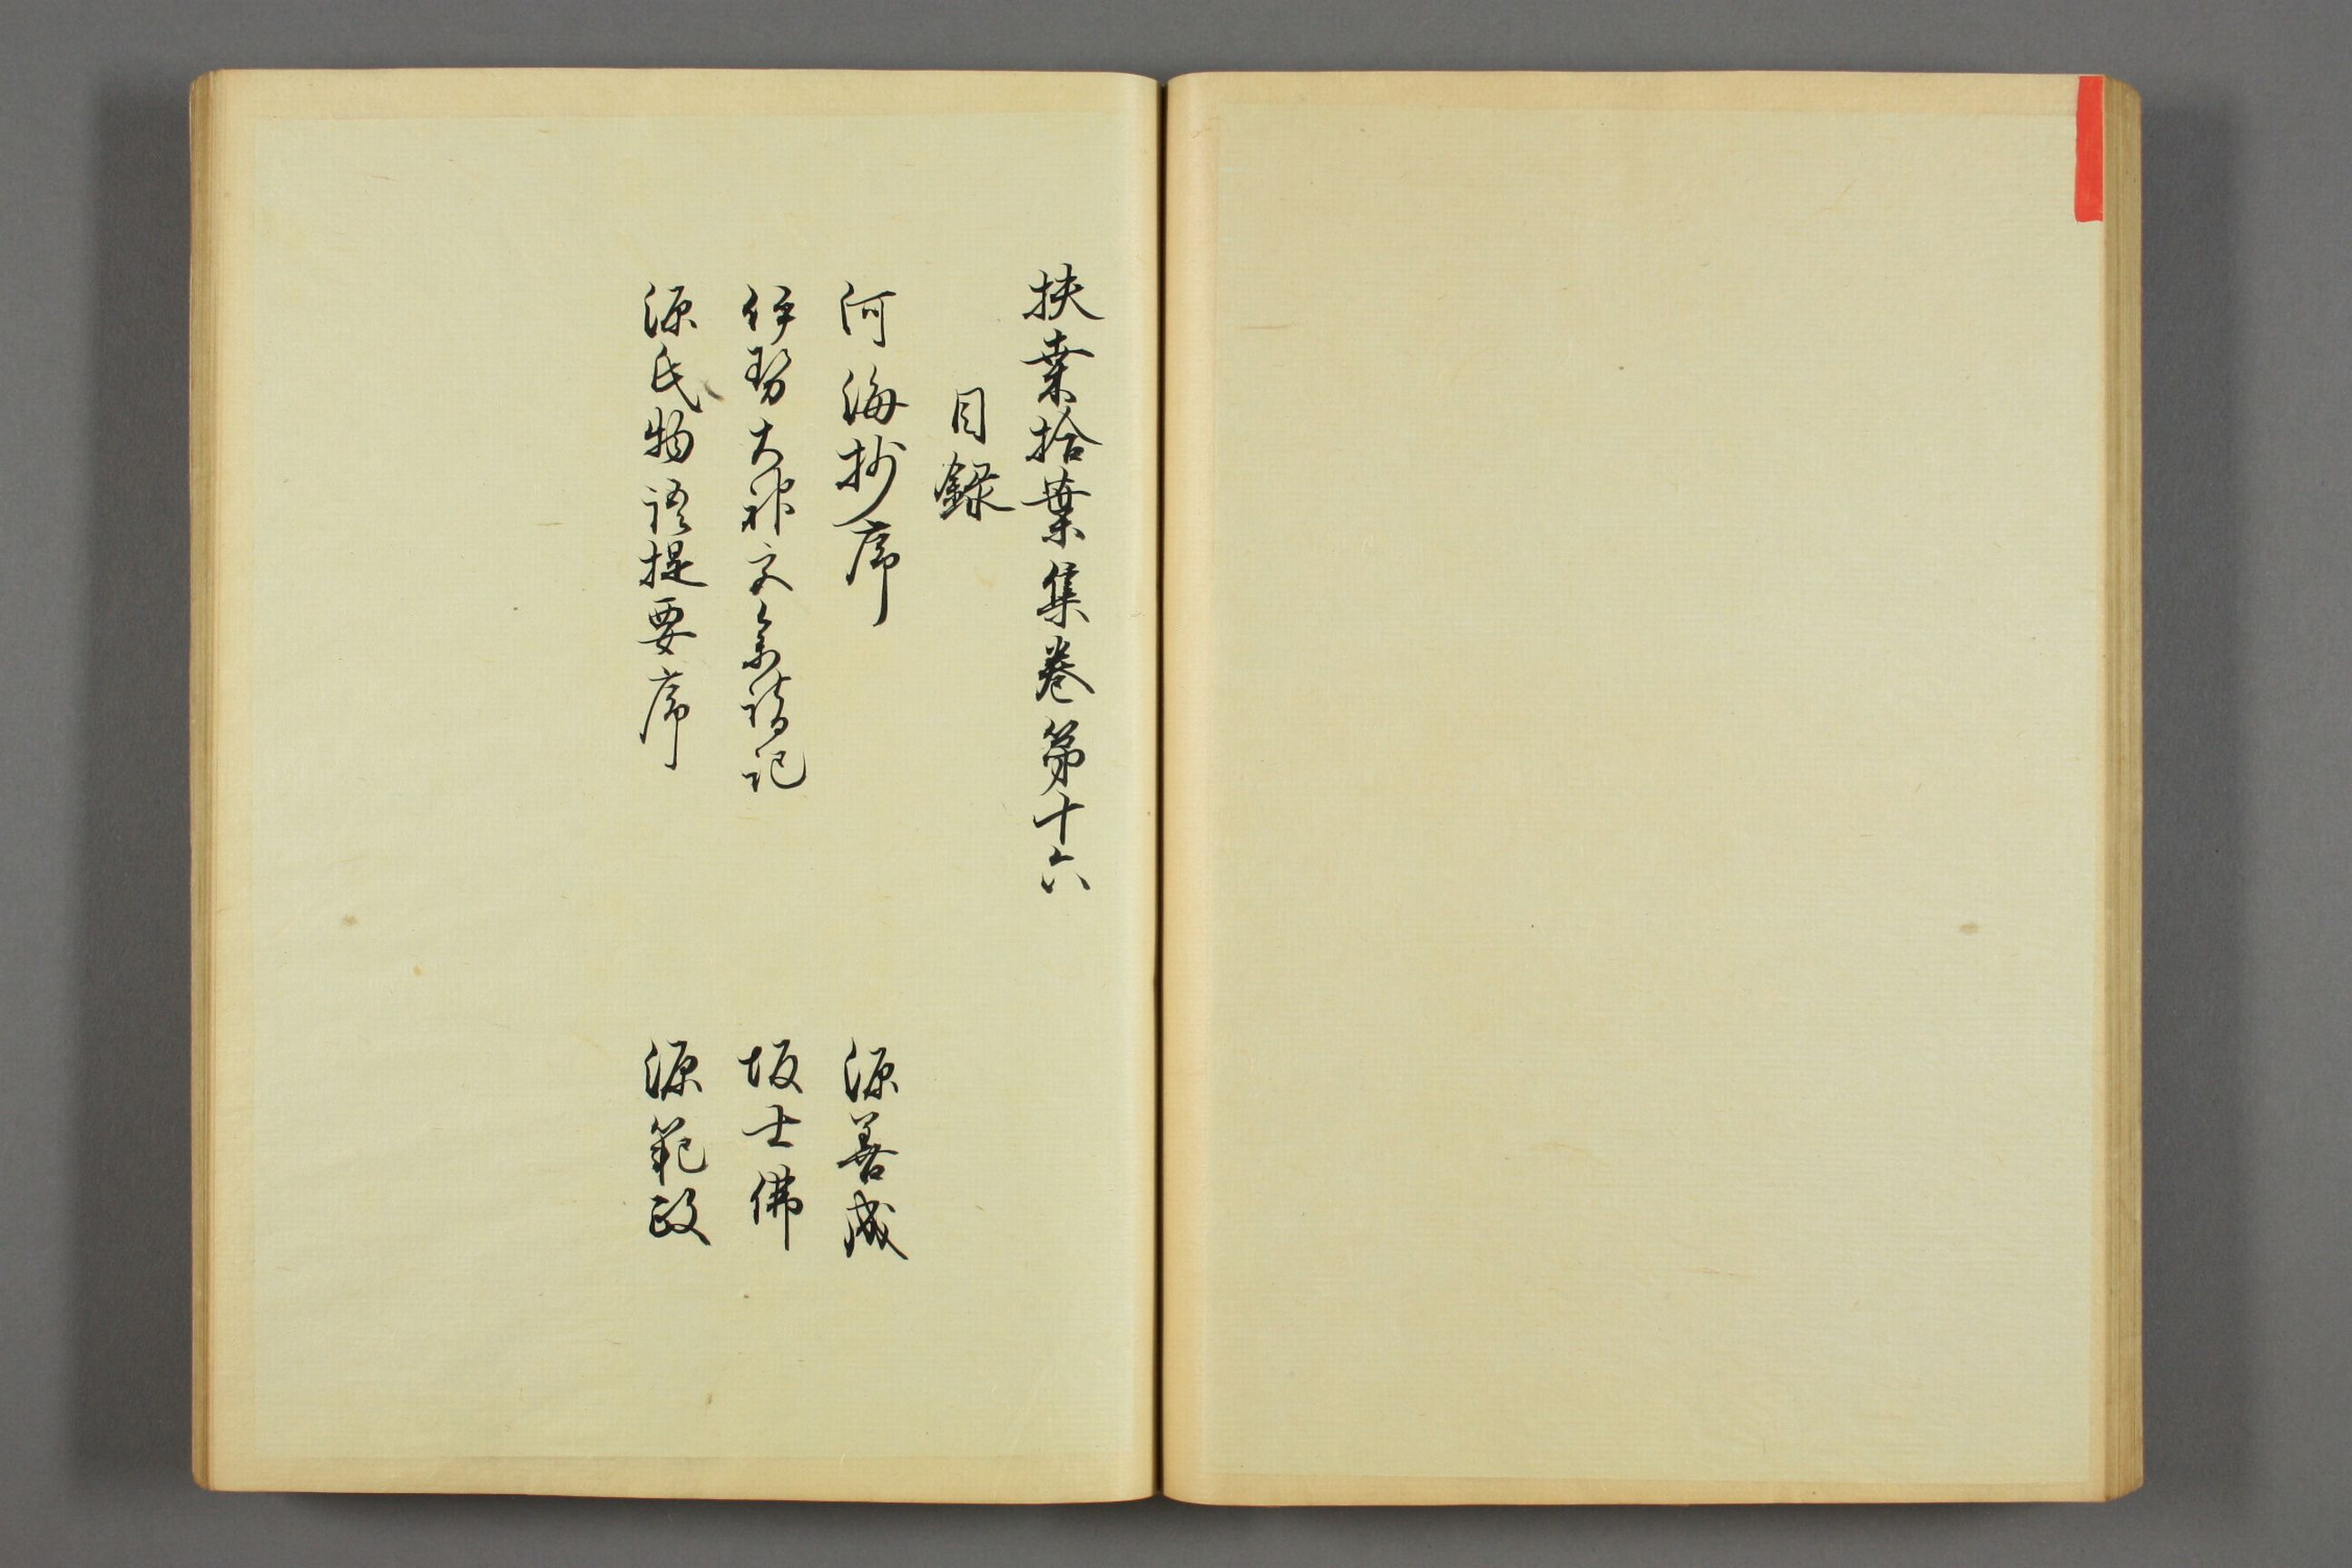 扶桑拾葉集卷第十六
目錄
河海抄序 源善成
伊勢大神宮參詣記 坂士佛
源氏物語提要序 源範政